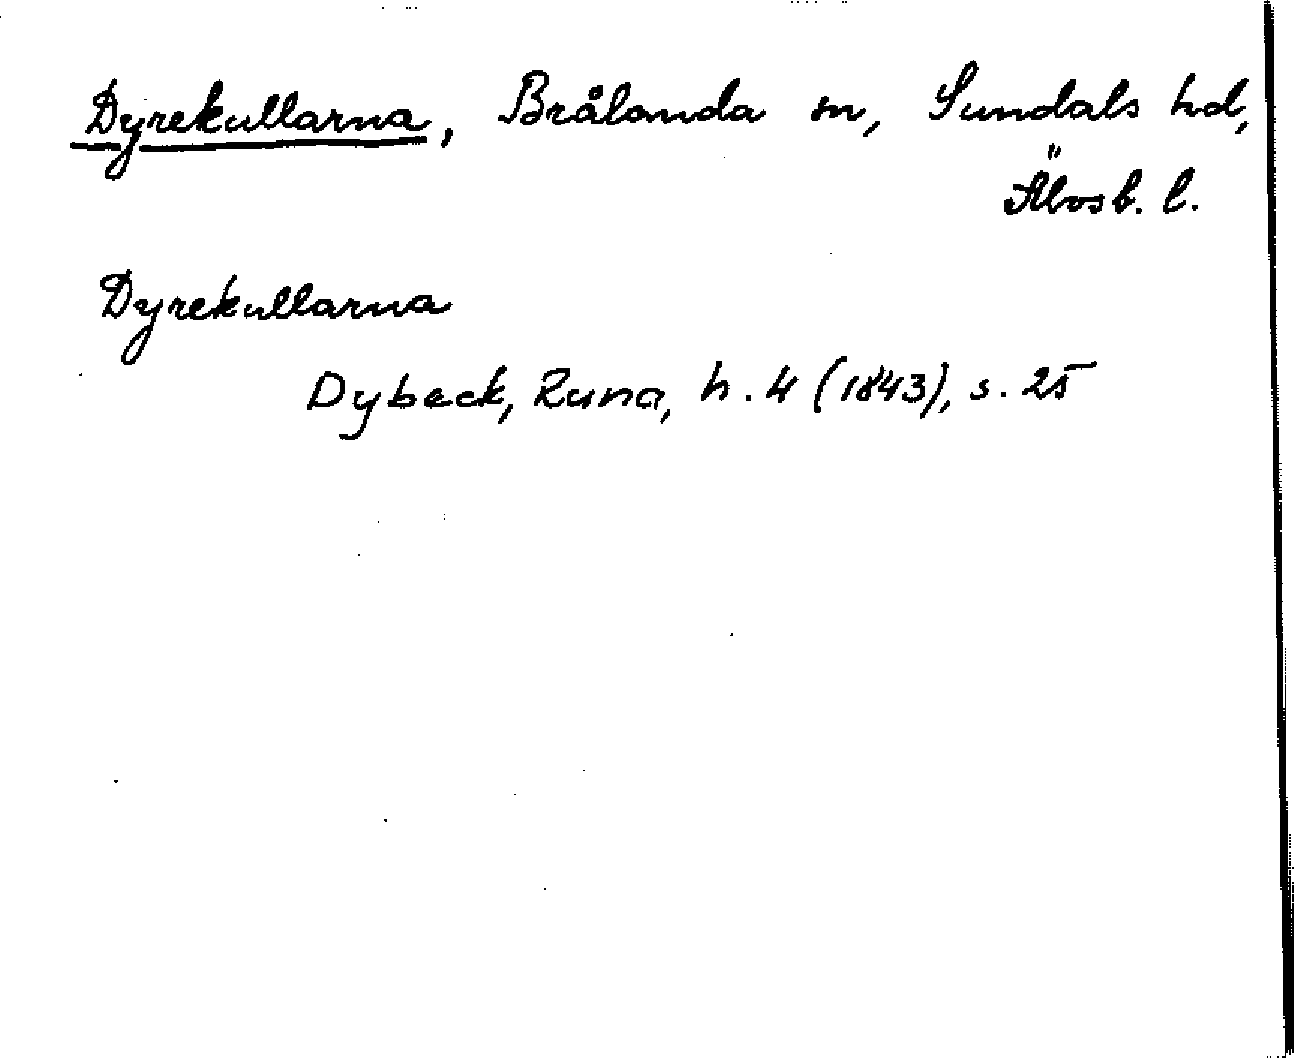 Dyrekullarna, Brålanda sn, Sundals hd,
Älvsb. l.
Dyrekullarna
Dybeck, Runa, h. 4 (1843), s. 25